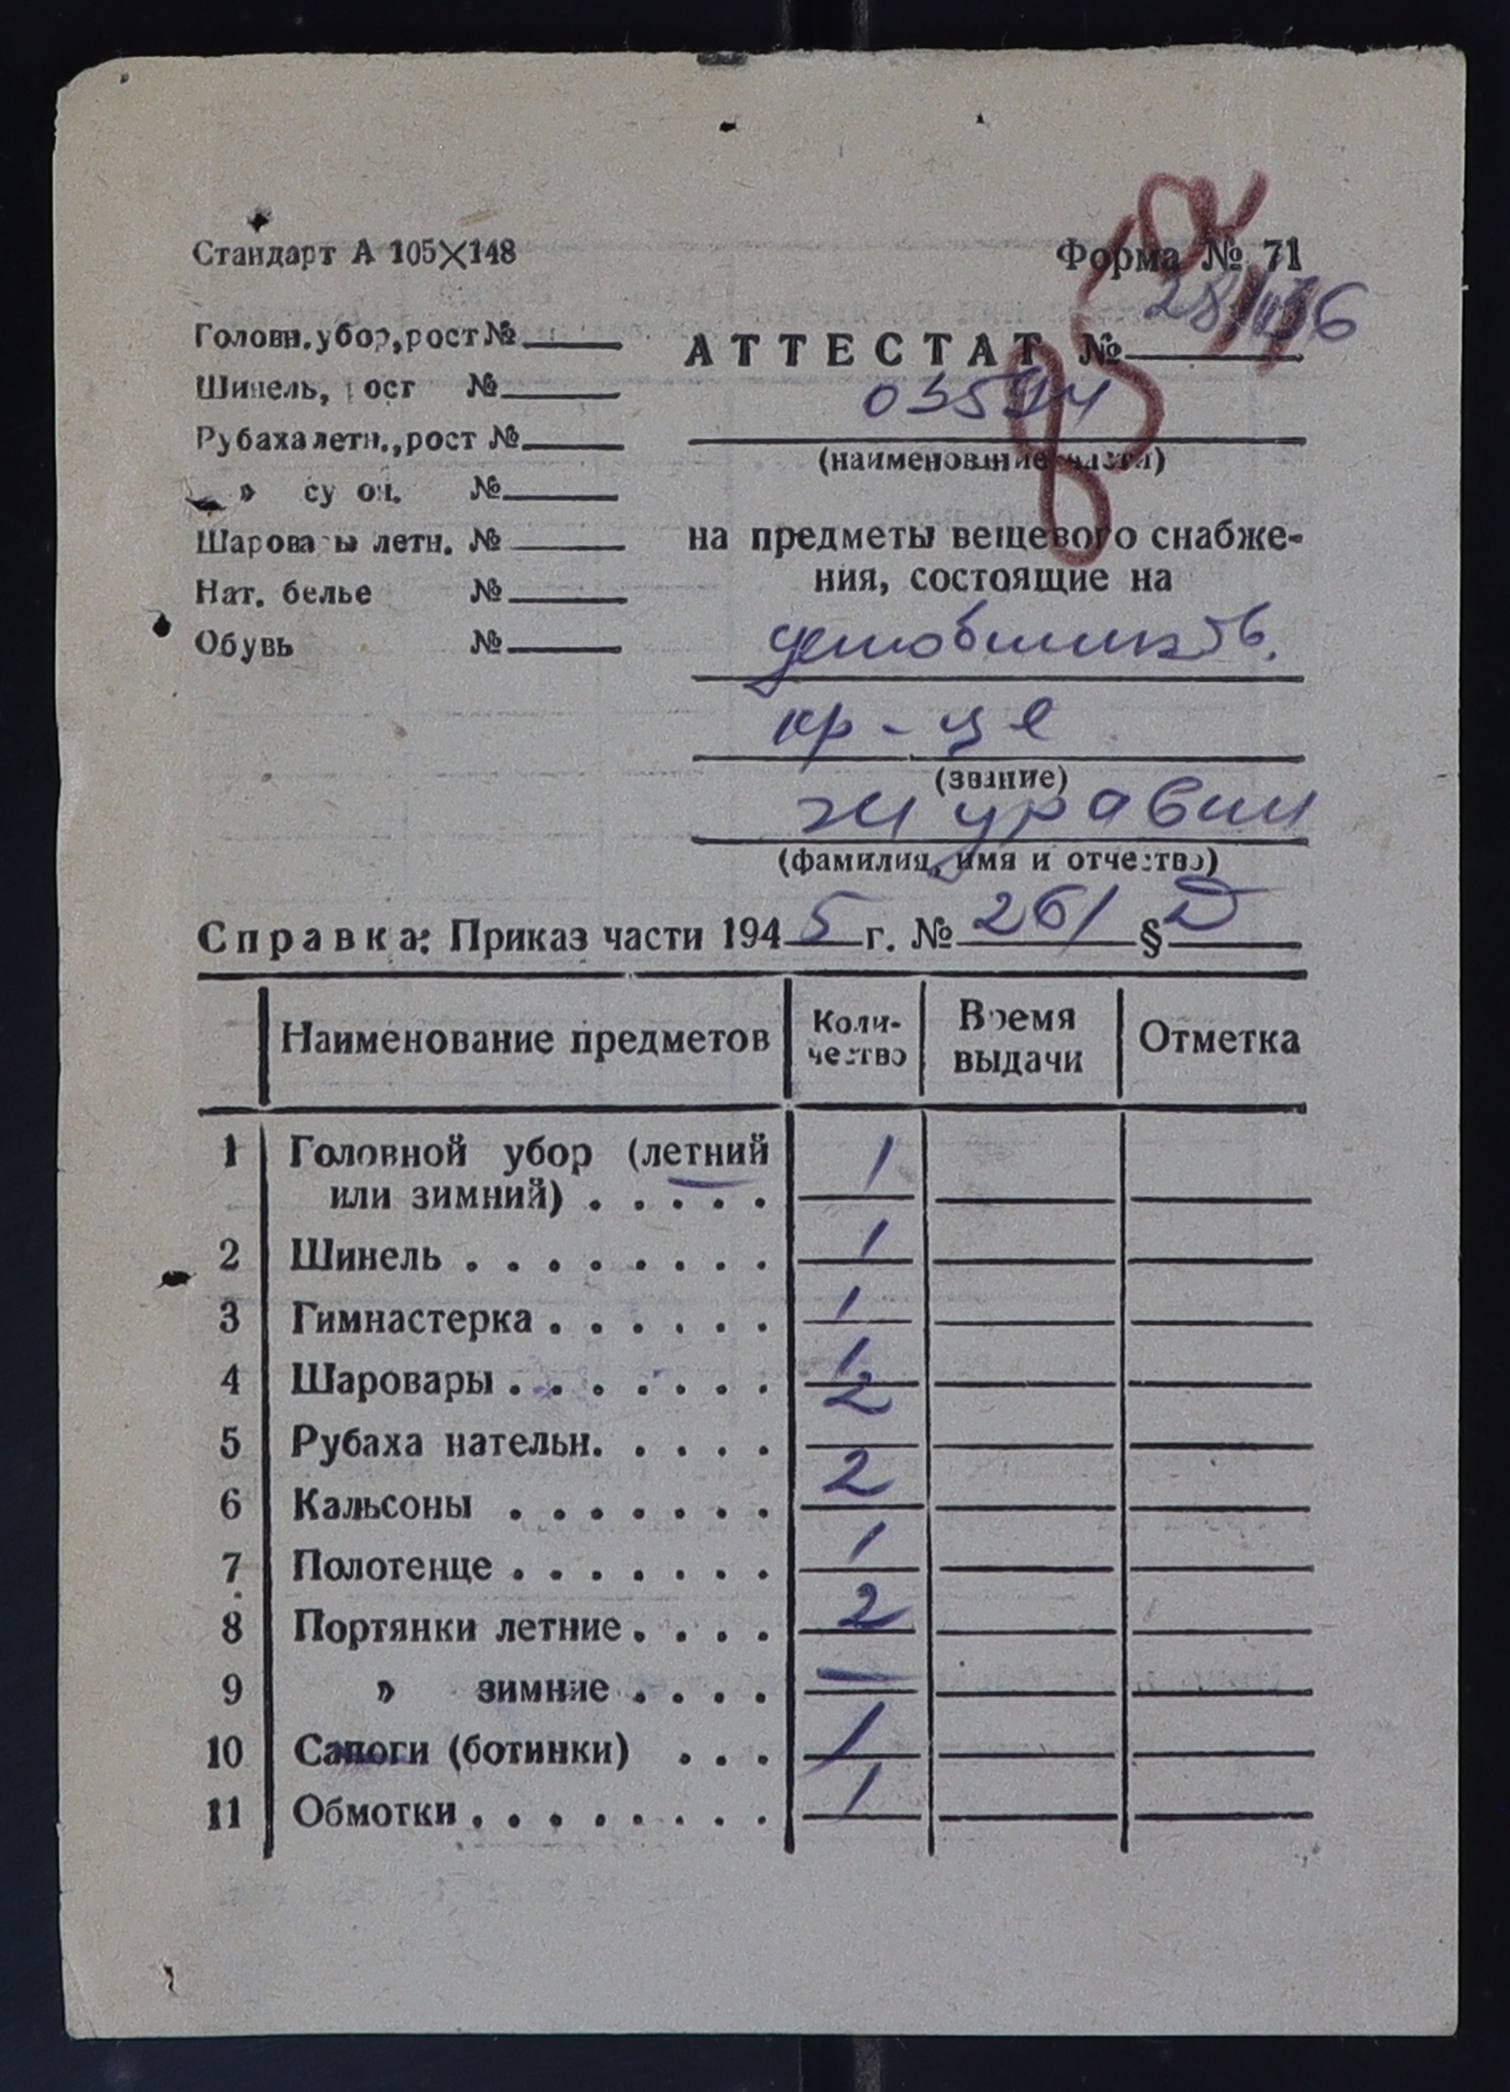 Стандарт А 105×148
Форма № 71
Головн. убор, рост №
Шинель, рост №
Рубаха летн., рост №
» сукон. №
Шаровары летн. №
Нат. белье №
Обувь №
АТТЕСТАТ №
03594
(наименование части)
на предметы вещевого снабже-
ния, состоящие на
кр-це
(звание)
(фамилия, имя и отчество)
Справка: Приказ части 1945 г. № 261 §
Наименование предметов
Коли-
чество
Время
выдачи
Отметка
1 Головной убор (летний
или зимний) . . . . . 1
2 Шинель . . . . . . . . 1
3 Гимнастерка . . . . . . 1
4 Шаровары . . . . . . . 1
5 Рубаха нательн. . . . . 2
6 Кальсоны . . . . . . . 2
7 Полотенце . . . . . . . 1
8 Портянки летние . . . . 2
9 » зимние . . . . —
10 Сапоги (ботинки) . . . 1
11 Обмотки . . . . . . . . 1